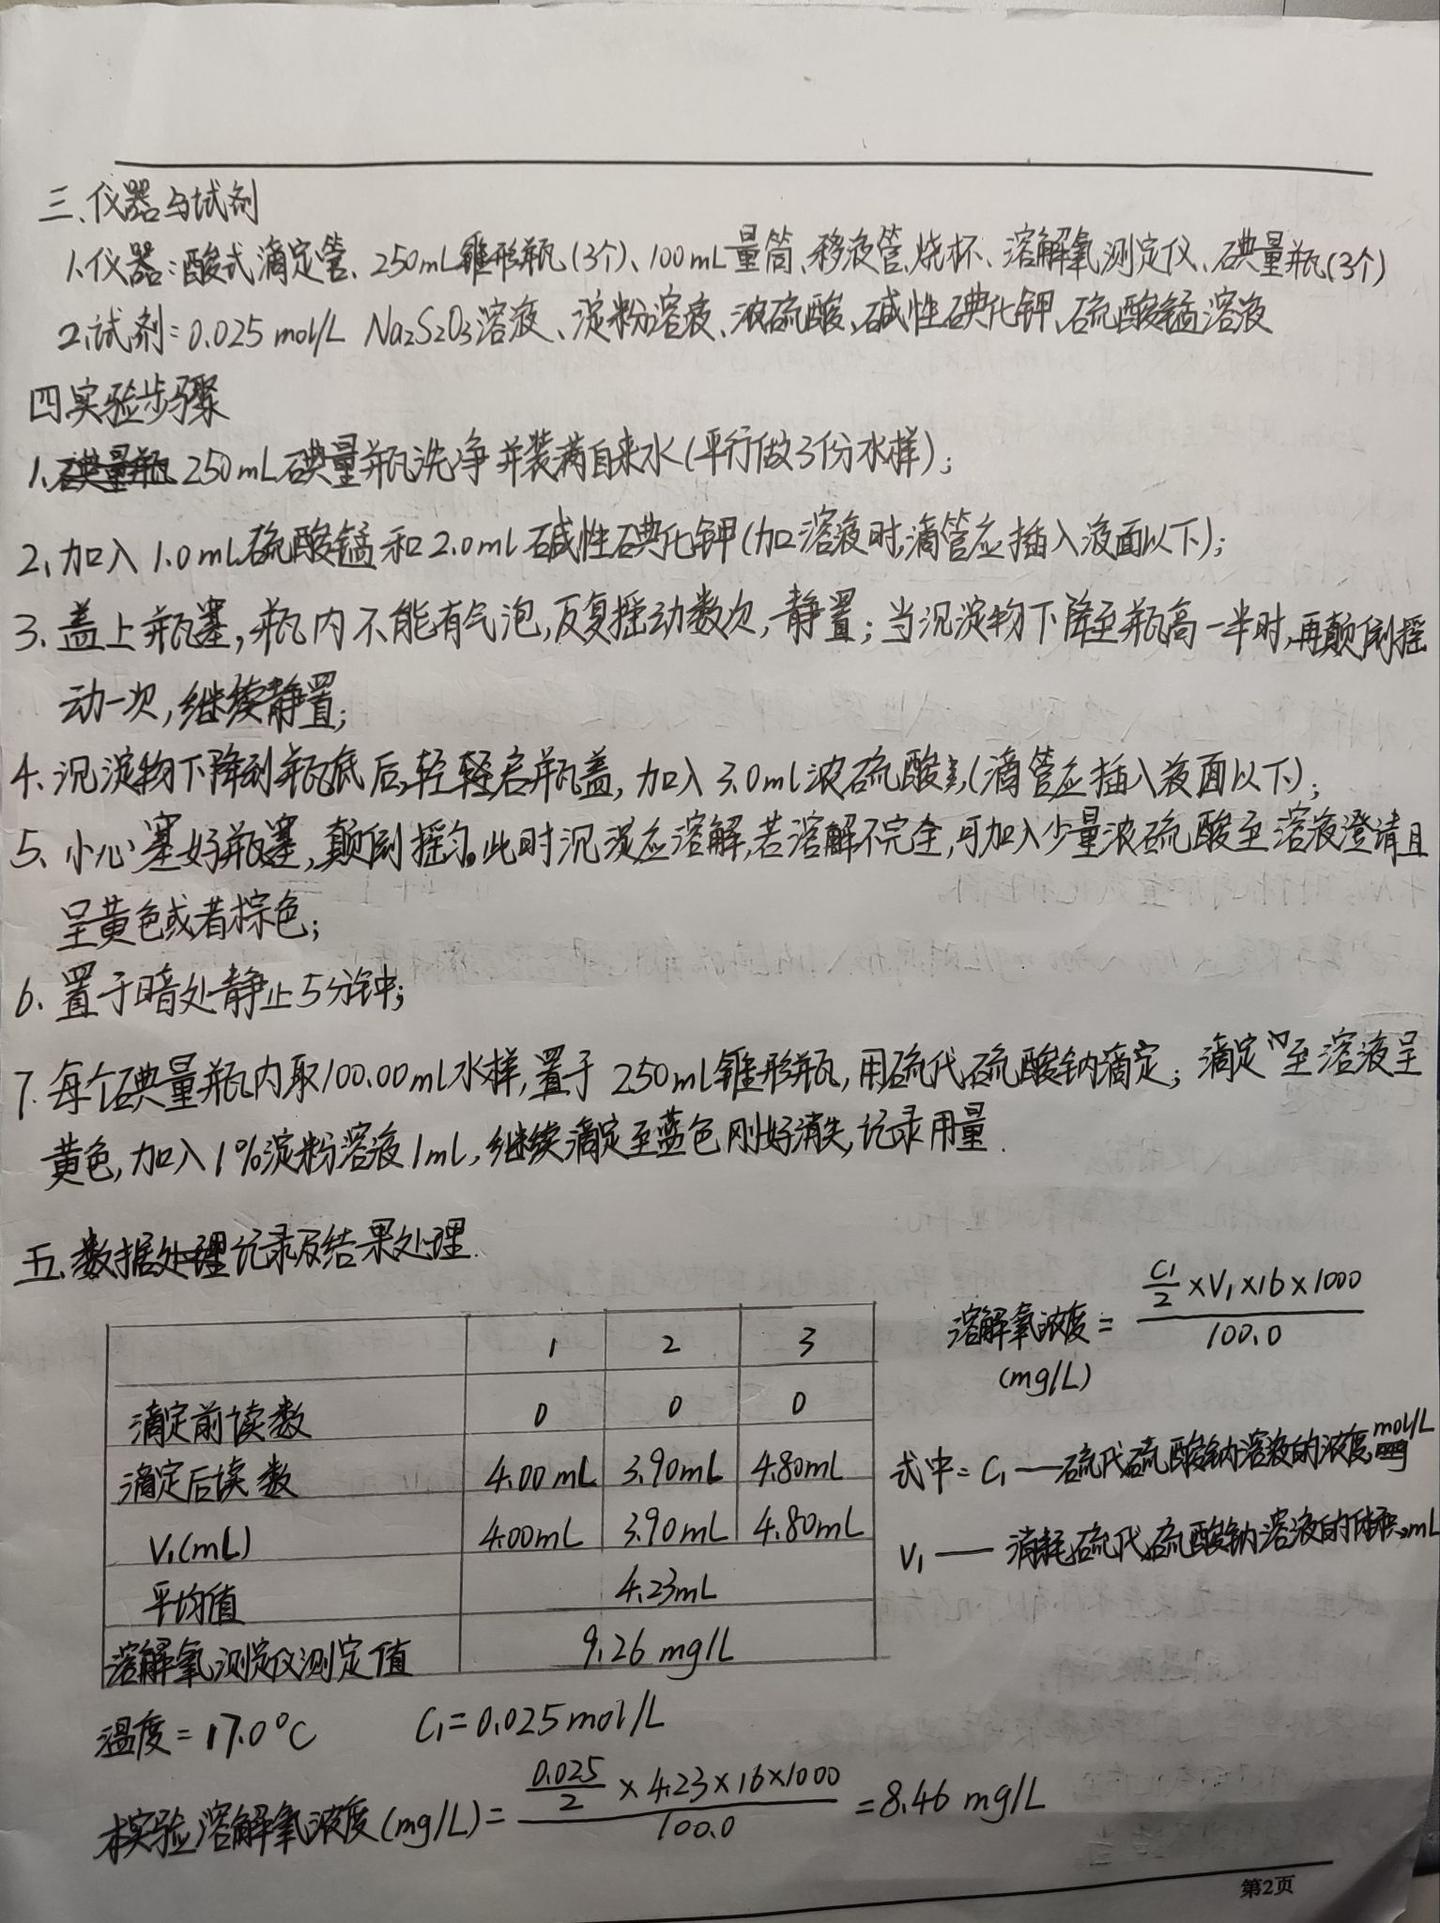 三、仪器与试剂
1、仪器:酸式滴定管、250mL锥形瓶(3个)、100mL量筒、移液管、烧杯、溶解氧测定仪、碘量瓶(3个)
2、试剂:0.025 mol/L Na₂S₂O₃溶液、淀粉溶液、浓硫酸、碱性碘化钾、硫酸锰溶液
四实验步骤
1、250mL碘量瓶洗净并装满自来水(平行做3份水样);
2、加入1.0mL硫酸锰和2.0mL碱性碘化钾(加溶液时,滴管应插入液面以下);
3、盖上瓶塞,瓶内不能有气泡,反复摇动数次,静置;当沉淀物下降至瓶高一半时,再颠倒摇
动一次,继续静置;
4、沉淀物下降到瓶底后,轻轻启瓶盖,加入3.0ml浓硫酸,(滴管应插入液面以下);
5、小心塞好瓶塞,颠倒摇匀。此时沉淀应溶解,若溶解不完全,可加入少量浓硫酸至溶液澄清且
呈黄色或者棕色;
6、置于暗处静止5分钟;
7.每个碘量瓶内取100.00ml水样,置于250ml锥形瓶,用硫代硫酸钠滴定;滴定至溶液呈
黄色,加入1%淀粉溶液1mL,继续滴定至蓝色刚好消失,记录用量.
五、数据处理记录及结果处理.
溶解氧浓度 = C₁/2 ×V₁×16×1000 / 100.0
(mg/L)
1 2 3
滴定前读数 0 0 0
滴定后读数 4.00mL 3.90mL 4.80mL
式中: C₁—硫代硫酸钠溶液的浓度,mol/L
V₁(mL) 4.00mL 3.90mL 4.80mL
V₁ — 消耗硫代硫酸钠溶液的体积,mL
平均值 4.23mL
溶解氧测定仪测定值 9.26 mg/L
温度=17.0℃ C₁=0.025mol/L
本实验溶解氧浓度(mg/L)= 0.025/2 ×4.23×16×1000 / 100.0 =8.46 mg/L
第2页